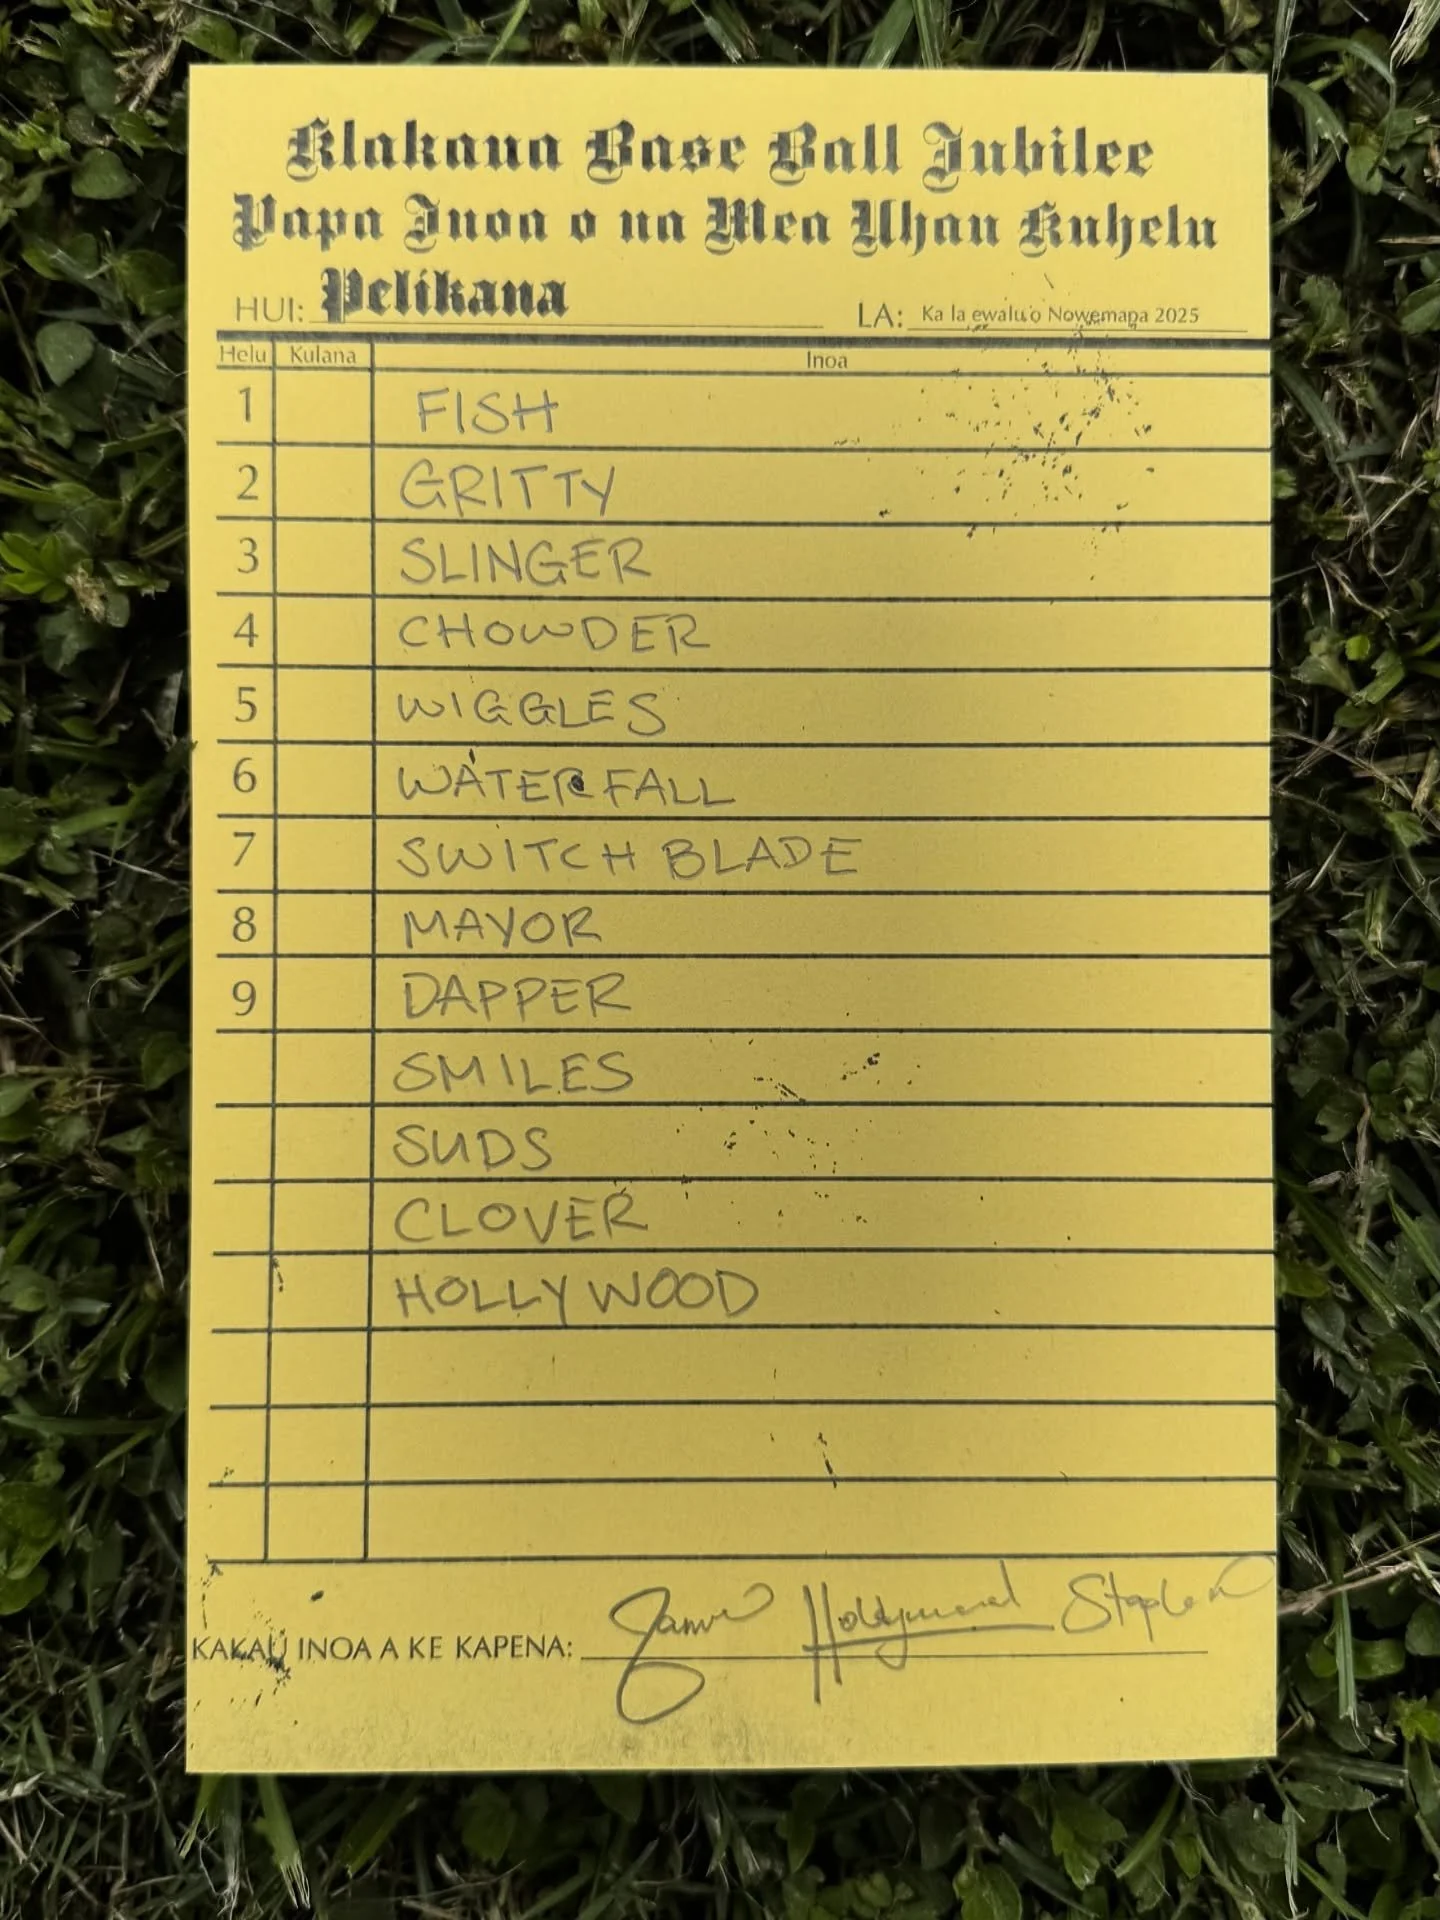 Klakaua Base Ball Jubilee
Papa Inoa o na Mea Uhau Kuhelu
HUI: Pelikana LA: Ka la ewalu o Nowemapa 2025
Helu Kulana Inoa
1 FISH
2 GRITTY
3 SLINGER
4 CHOWDER
5 WIGGLES
6 WATERFALL
7 SWITCH BLADE
8 MAYOR
9 DAPPER
SMILES
SUDS
CLOVER
HOLLYWOOD
KAKAU INOA A KE KAPENA: Hollywood Stephen